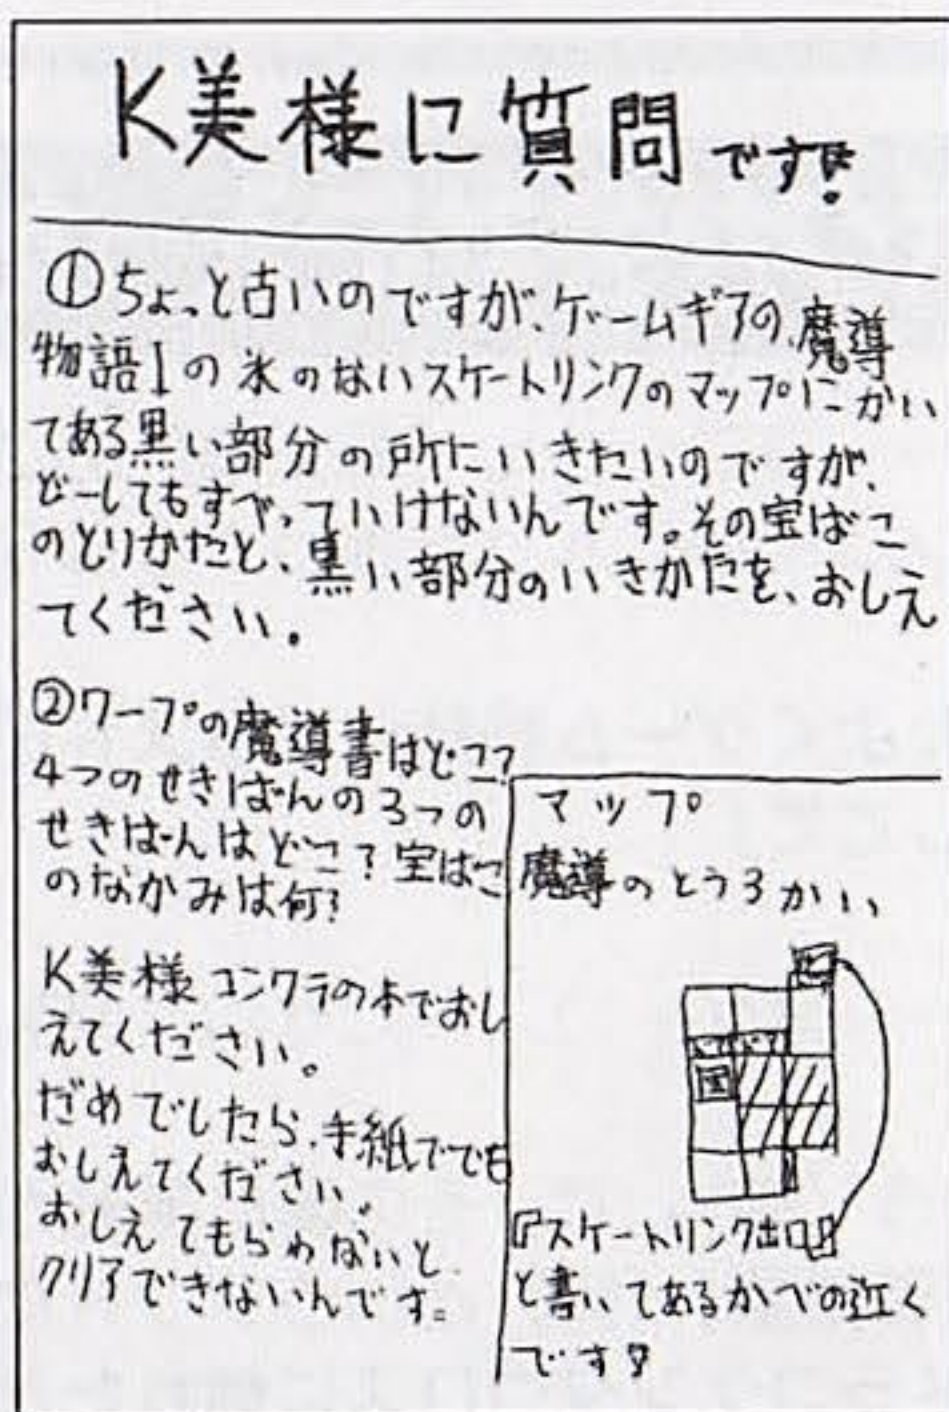 K美様に質問です!!
①ちょっと古いのですが、ゲームギアの魔導
物語Iの氷のないスケートリンクのマップにかい
てある黒い部分の所にいきたいのですが、
どーしてもすべっていけないんです。その宝ばこ
のとりかたと、黒い部分のいきかたを、おしえ
てください。
②ワープの魔導書はどこ?
4つのせきばんの3つの
せきばんはどこ?宝ばこ
のなかみは何?
K美様コンクラの本でおし
えてください。
だめでしたら、手紙ででも
おしえてください。
おしえてもらわないと
クリアできないんです。
マップ
魔導のとう3かい
『スケートリンク出口』
と書いてあるかべの近く
です!!